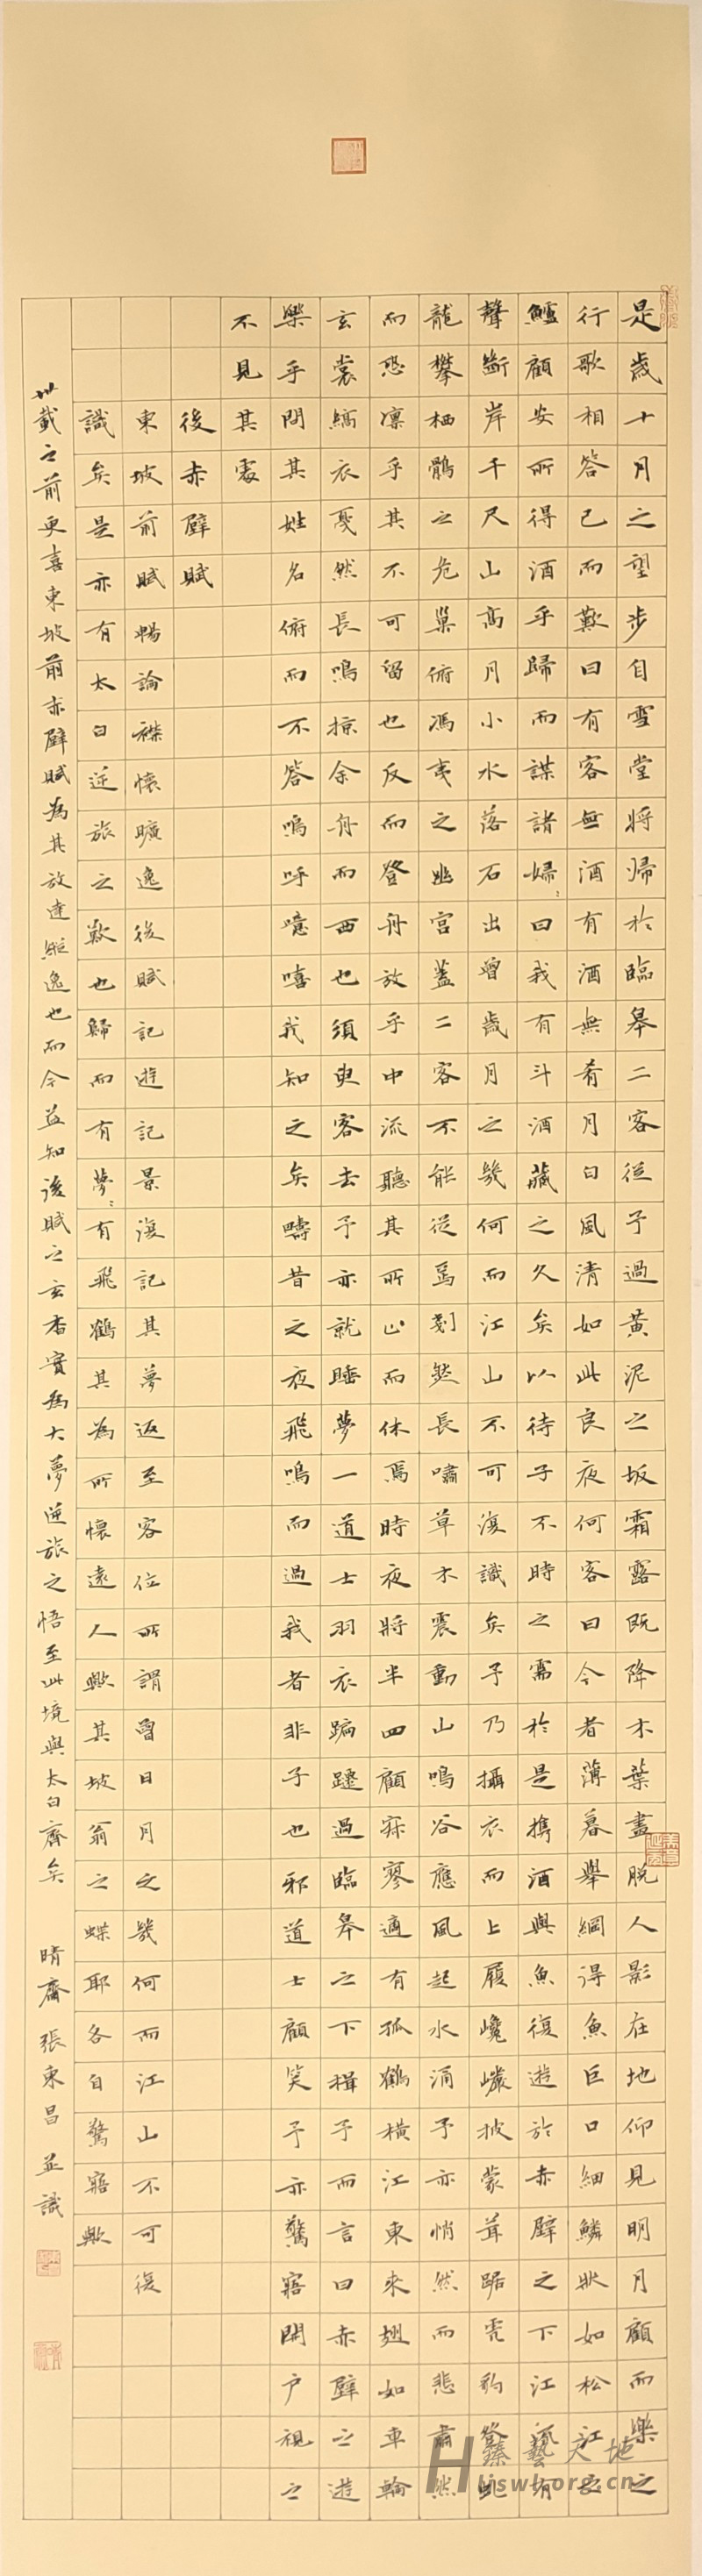 是歲十月之望步自雪堂將歸於臨皋二客從予過黃泥之坂霜露既降木葉盡脫人影在地仰見明月顧而樂之
行歌相答已而歎曰有客無酒有酒無肴月白風清如此良夜何客曰今者薄暮舉網得魚巨口細鱗狀如松江之
鱸顧安所得酒乎歸而謀諸婦〻曰我有斗酒藏之久矣以待子不時之需於是攜酒與魚復遊於赤壁之下江流有
聲斷岸千尺山高月小水落石出曾歲月之幾何而江山不可復識矣予乃攝衣而上履巉巖披蒙茸踞虎豹登虬
龍攀栖鶻之危巢俯馮夷之幽宮蓋二客不能從焉劃然長嘯草木震動山鳴谷應風起水涌予亦悄然而悲肅然
而恐凜乎其不可留也反而登舟放乎中流聽其所止而休焉時夜將半四顧寂寥適有孤鶴橫江東來翅如車輪
玄裳縞衣戛然長鳴掠余舟而西也須臾客去予亦就睡夢一道士羽衣蹁躚過臨皋之下揖予而言曰赤壁之遊
樂乎問其姓名俯而不答嗚呼噫嘻我知之矣疇昔之夜飛鳴而過我者非子也邪道士顧笑予亦驚寤開戶視之
不見其處
後赤壁賦
東坡前賦暢論襟懷曠逸後賦記遊記景復記其夢返至客位所謂曾日月之幾何而江山不可復
識矣是亦有太白逆旅之歎也歸而有夢〻有飛鶴其為所懷遠人歟其坡翁之蝶耶各自驚寤歟
卅載之前更喜東坡前赤壁賦為其放達縱逸也而今益知後賦之玄杳實為大夢逆旅之悟至此境與太白齊矣 晴齋 張東昌 並識
臻藝天地
Hljswborg.cn